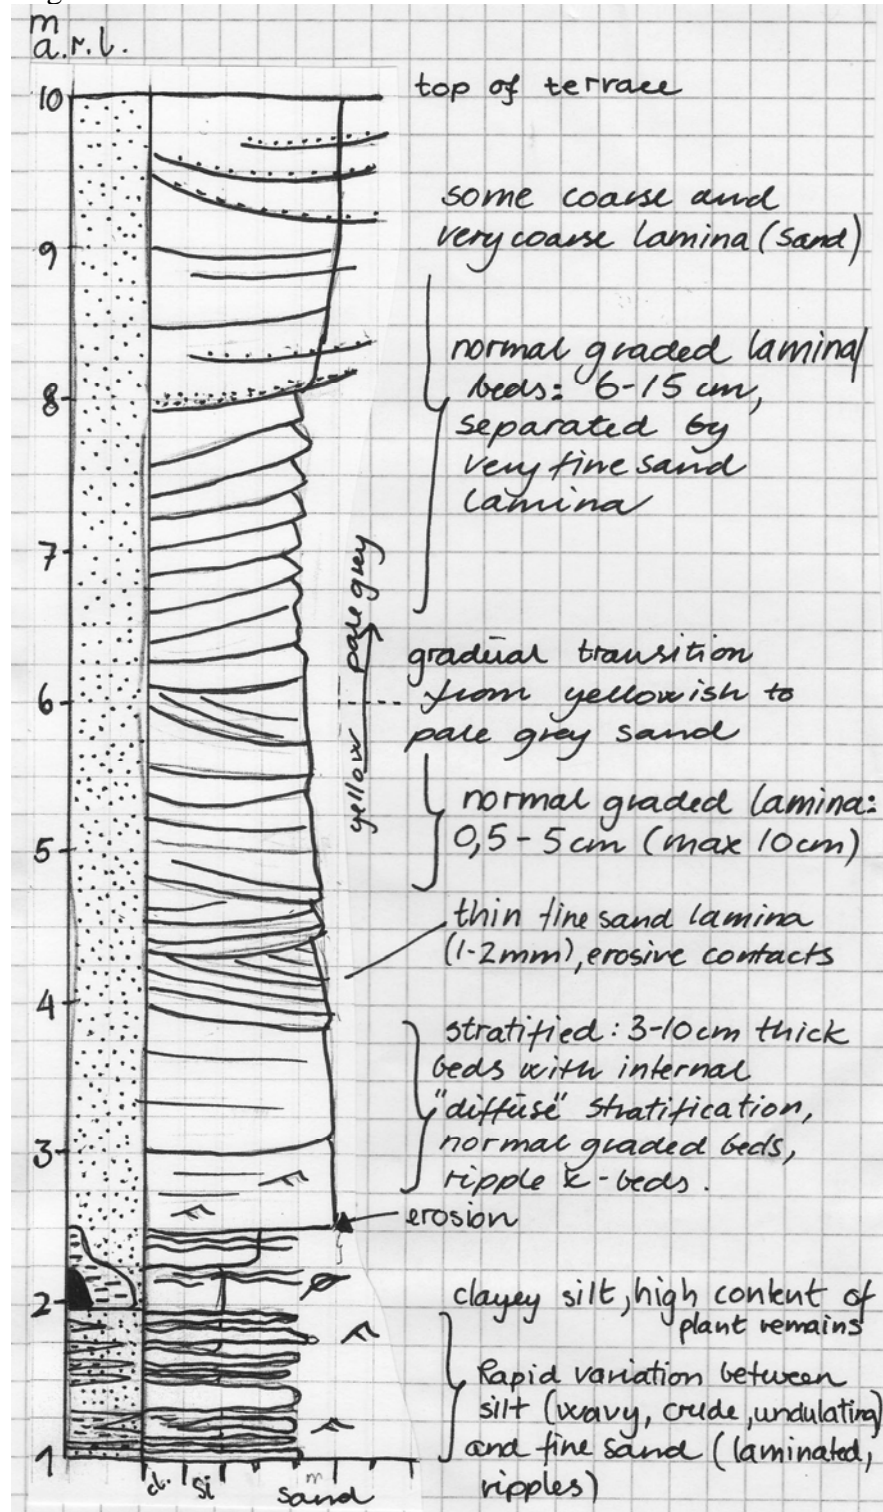 m
a.r.l.
10
top of terrace
some coarse and
very coarse lamina (sand)
9
normal graded lamina/
beds: 6-15 cm,
separated by
very fine sand
lamina
8
7
yellow pale grey
gradual transition
from yellowish to
pale grey sand
6
normal graded lamina:
0,5-5cm (max 10cm)
5
thin fine sand lamina
(1-2mm), erosive contacts
4
stratified: 3-10cm thick
beds with internal
"diffuse" stratification,
normal graded beds,
ripple x-beds.
3
erosion
2
clayey silt, high content of
plant remains
Rapid variation between
silt (wavy, crude, undulating)
and fine sand (laminated,
ripples)
1
cl. Si m
sand